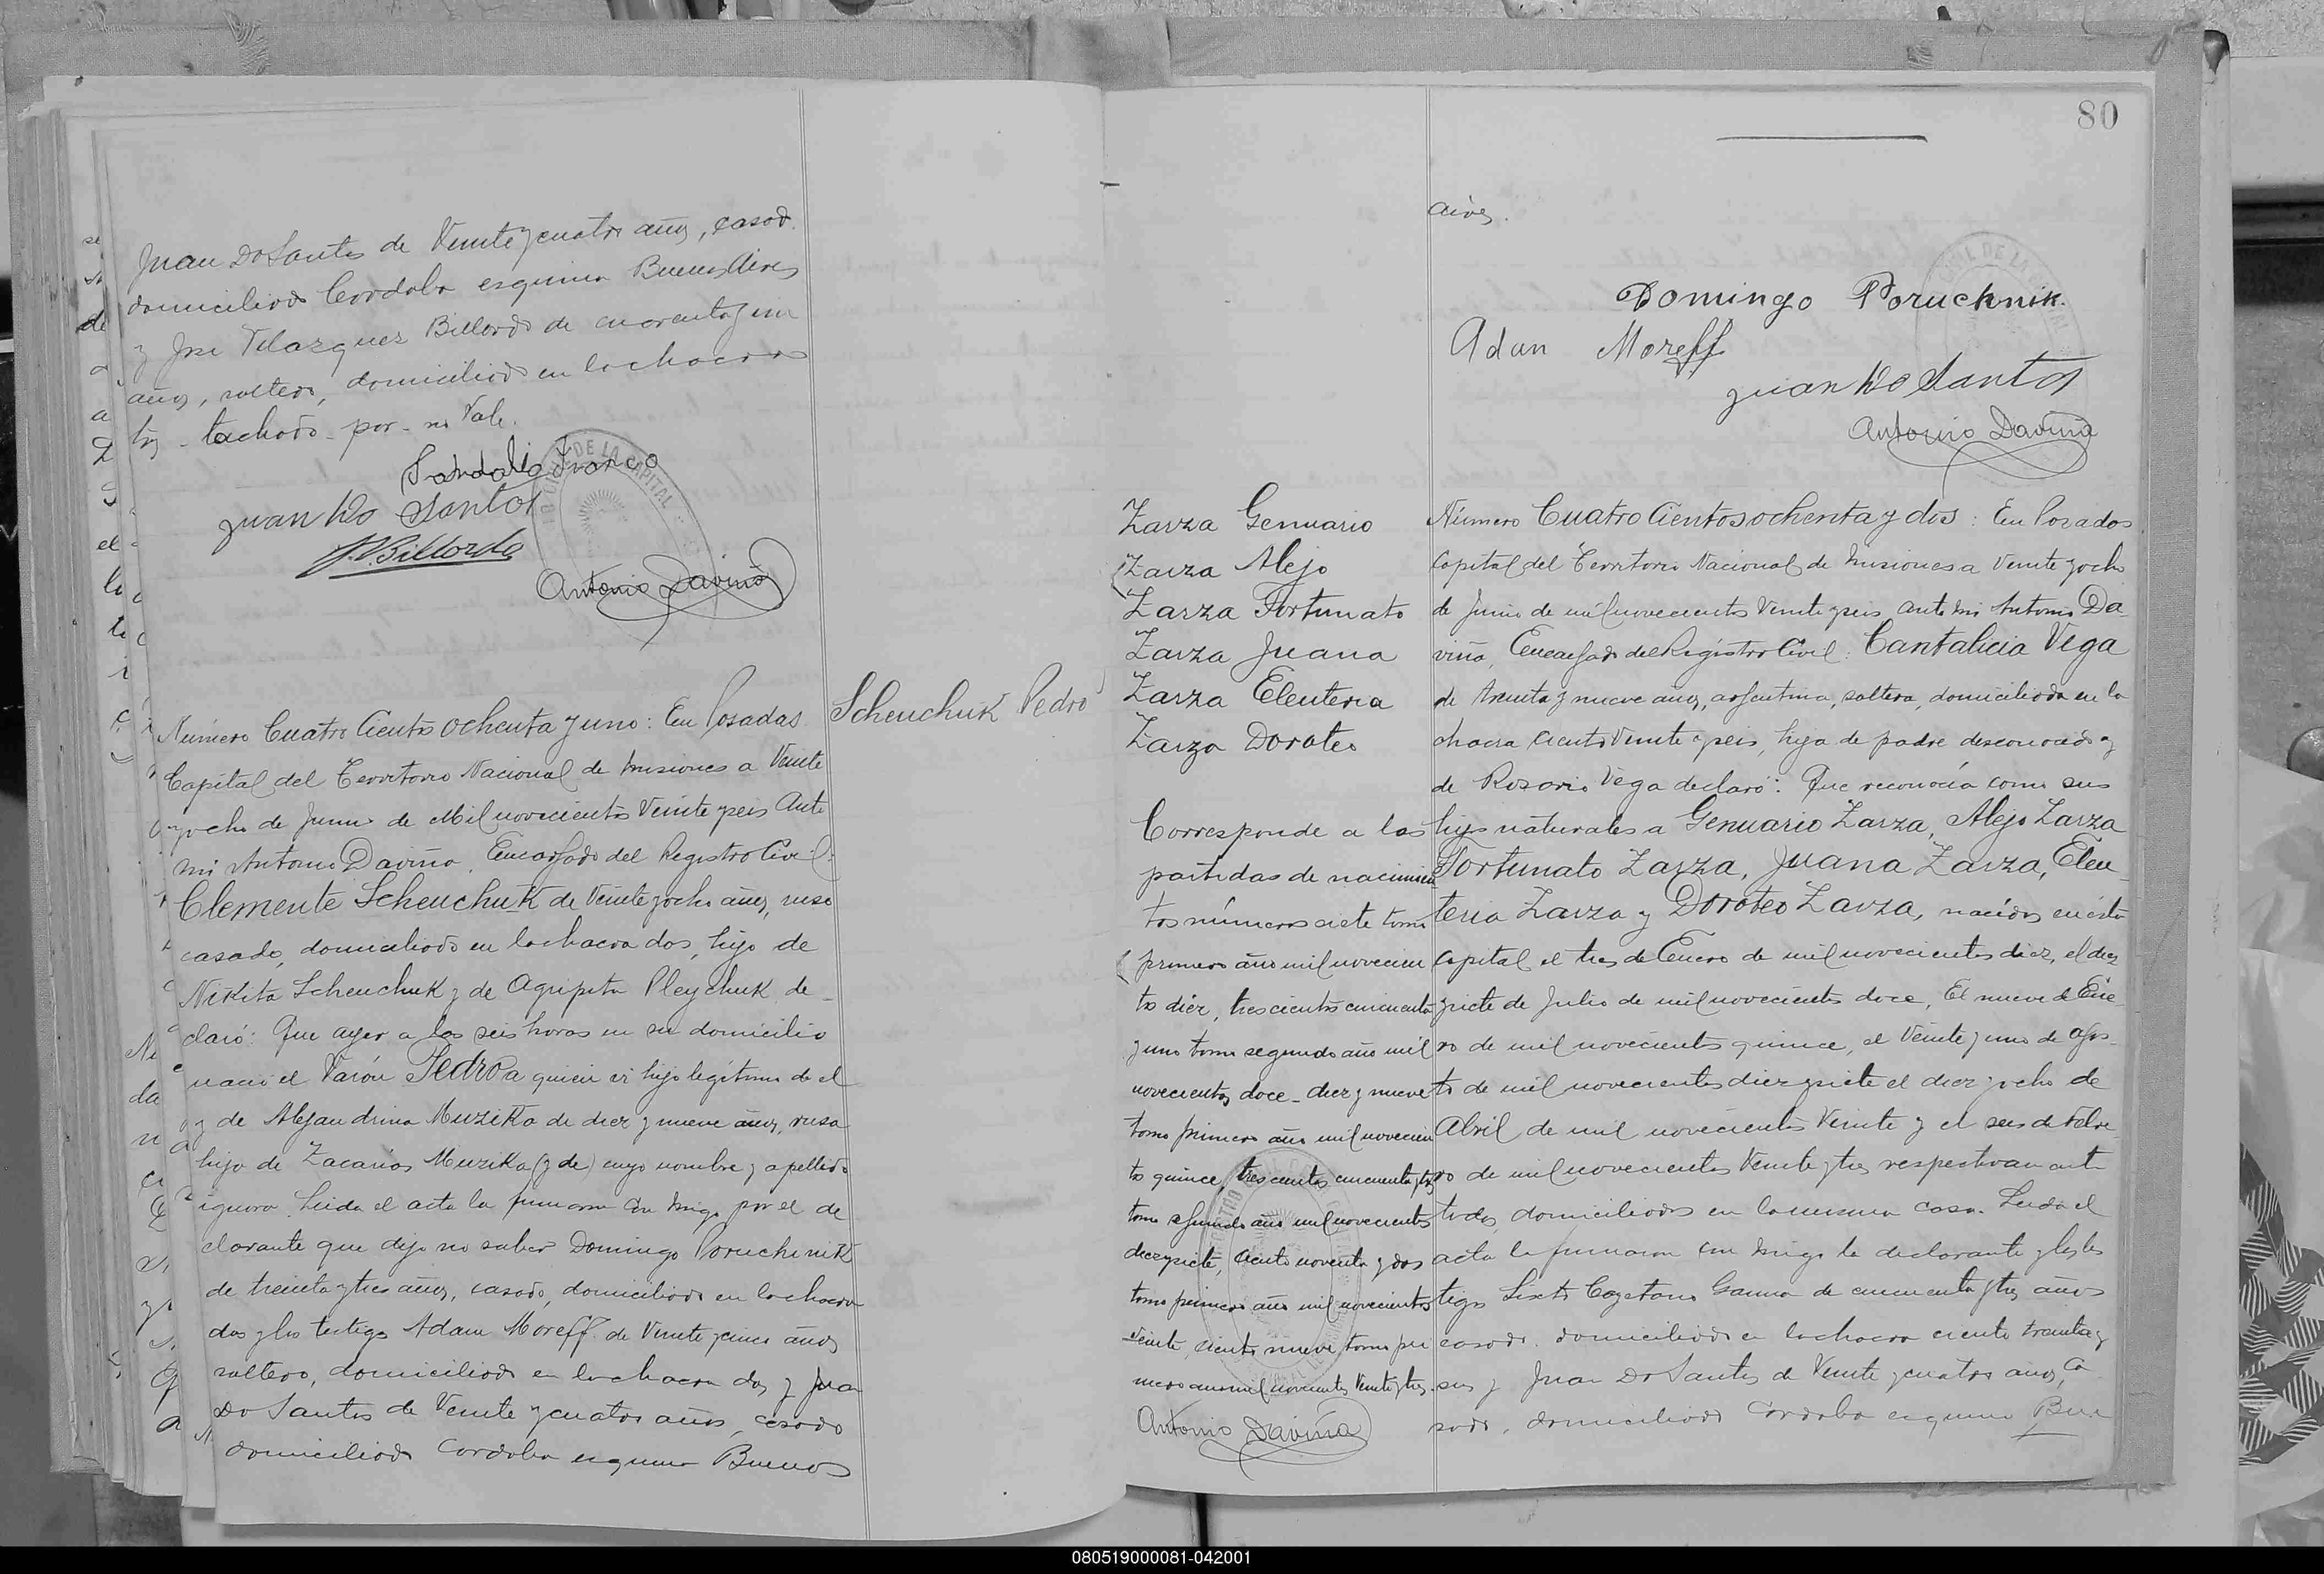 Juan Do Santos de Veinte y cuatro años, casado
domiciliado Cordoba esquina Buenos Aires
y José Velazquez Billordo de cuarenta y un
años, soltero, domiciliado en la chacra
tres - tachado - por - no Vale.
Sandalio Franco
Juan Do Santos
J. V. Billordo
Antonio Daviña
Scheuchuk Pedro
Número Cuatro Cientos Ochenta y uno: En Posadas
Capital del Territorio Nacional de Misiones a Veinte
y ocho de Junio de Mil novecientos Veinte y seis Ante
mi Antonio Daviña, Encargado del Registro Civil:
Clemente Scheuchuk de Veinte y ocho años, ruso
casado, domiciliado en la chacra dos, hijo de
Nikita Scheuchuk y de Agripita Pleychuk de-
claró: Que ayer a las seis horas en su domicilio
nació el Varón Pedro a quien es hijo legítimo de el
y de Alejandrina Muzika de diez y nueve años, rusa
hija de Zacarias Muzika (y de) cuyo nombre y apellido
ignora. Leida el acta la firmaron con migo por el de
clarante que dijo no saber Domingo Poruchnik
de treinta y tres años, casado, domiciliado en la chacra
dos y los testigos Adam Moreff de Veinte y cinco años
soltero, domiciliado en la chacra dos y Juan
Do Santos de Veinte y cuatro años, casado
domiciliado Cordoba esquina Buenos
80
Aires.
Domingo Poruchnik.
Adan Moreff
Juan Do Santos
Antonio Daviña
Zarza Genuario
Zarza Alejo
Zarza Fortunato
Zarza Juana
Zarza Eleuteria
Zarza Doroteo
Corresponde a las
partidas de nacimien
tos números siete tomo
primero año mil novecien
tos diez, trescientos cincuenta
y uno tomo segundo año mil
novecientos doce - diez y nueve
tomo primero año mil novecien
tos quince, trescientos cincuenta y tres
tomo segundo año mil novecientos
diez y siete, ciento noventa y dos
tomo primero año mil novecientos
veinte, ciento nueve, tomo pri
mero año mil novecientos Veinte y tres.
Antonio Daviña
Número Cuatro Cientos ochenta y dos: En Posadas
Capital del Territorio Nacional de Misiones a Veinte y ocho
de Junio de mil novecientos Veinte y seis, ante mi Antonio Da-
viña, Encargado del Registro Civil: Cantalicia Vega
de treinta y nueve años, argentina, soltera, domiciliada en la
chacra ciento Veinte y seis, hija de padre desconocido y
de Rosario Vega declaró: Que reconocía como sus
hijos naturales a Genuario Zarza, Alejo Zarza
Fortunato Zarza, Juana Zarza, Eleu-
teria Zarza y Doroteo Zarza, nacidos en ésta
Capital el tres de Enero de mil novecientos diez, el diez
y siete de Julio de mil novecientos doce, El nueve de Ene-
ro de mil novecientos quince, el Veinte y uno de Agos-
to de mil novecientos diez y siete el diez y ocho de
Abril de mil novecientos Veinte y el seis de Febre-
ro de mil novecientos Veinte y tres respectivamente
todos domiciliados en la misma casa. Leida el
acta la firmaron con migo la declarante y los tes
tigos Sixto Cayetano Gauna de cincuenta y tres años
casado, domiciliado en la chacra ciento treinta y
seis y Juan Do Santos de Veinte y cuatro años, ca
sado, domiciliado Cordoba esquina Bue
080519000081-042001